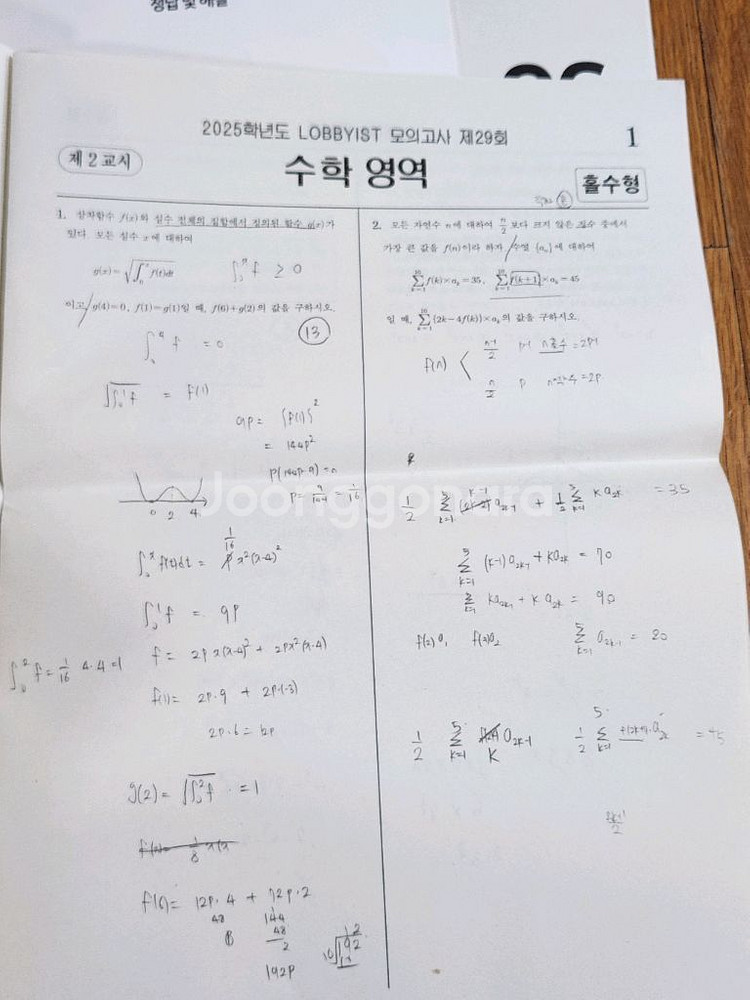 정답 및 해설
2025학년도 LOBBYIST 모의고사 제29회
1
제 2 교시
수학 영역
홀수형
1. 삼차함수 f(x)와 실수 전체의 집합에서 정의된 함수 g(x)가
있다. 모든 실수 x에 대하여
g(x)=√∫₀ˣ f(t)dt
∫₀ˣ f ≥ 0
이고 g(4)=0, f(1)=g(1)일 때, f(6)+g(2)의 값을 구하시오.
13
∫₀⁴ f = 0
√∫₀¹ f = f(1)
9p = {f(1)}²
= 144p²
p(144p-9)=0
p= 9/144 = 1/16
0 2 4
∫₀ˣ f(t)dt = 1/16 x²(x-4)²
∫₀¹ f = 9p
f = 2p x(x-4)² + 2px²(x-4)
∫₀² f = 1/16 4·4 =1
f(1)= 2p·9 + 2p·(-3)
2p·6 = 12p
g(2) = √∫₀² f = 1
f(6)= 12p·4 + 72p·2
48
144
48
192p
2. 모든 자연수 n에 대하여 n/2보다 크지 않은 정수 중에서
가장 큰 값을 f(n)이라 하자. 수열 {aₙ}에 대하여
∑ f(k)×aₖ=35, ∑ f(k+1)×aₖ=45
일 때, ∑{2k-4f(k)}×aₖ의 값을 구하시오.
f(n) <
n-1/2 p-1 n홀수 =2p-1
n/2 p n짝수 =2p
1/2 ∑ k-1 a₂ₖ₋₁ + 1/2 ∑ k a₂ₖ = 35
∑ (k-1)a₂ₖ₋₁ + ka₂ₖ = 70
∑ ka₂ₖ₋₁ + k a₂ₖ = 90
f(2)a₁ f(3)a₂ ∑ a₂ₖ₋₁ = 20
1/2 ∑ k a₂ₖ₋₁ 1/2 ∑ a₂ₖ = 45
Joonggonara